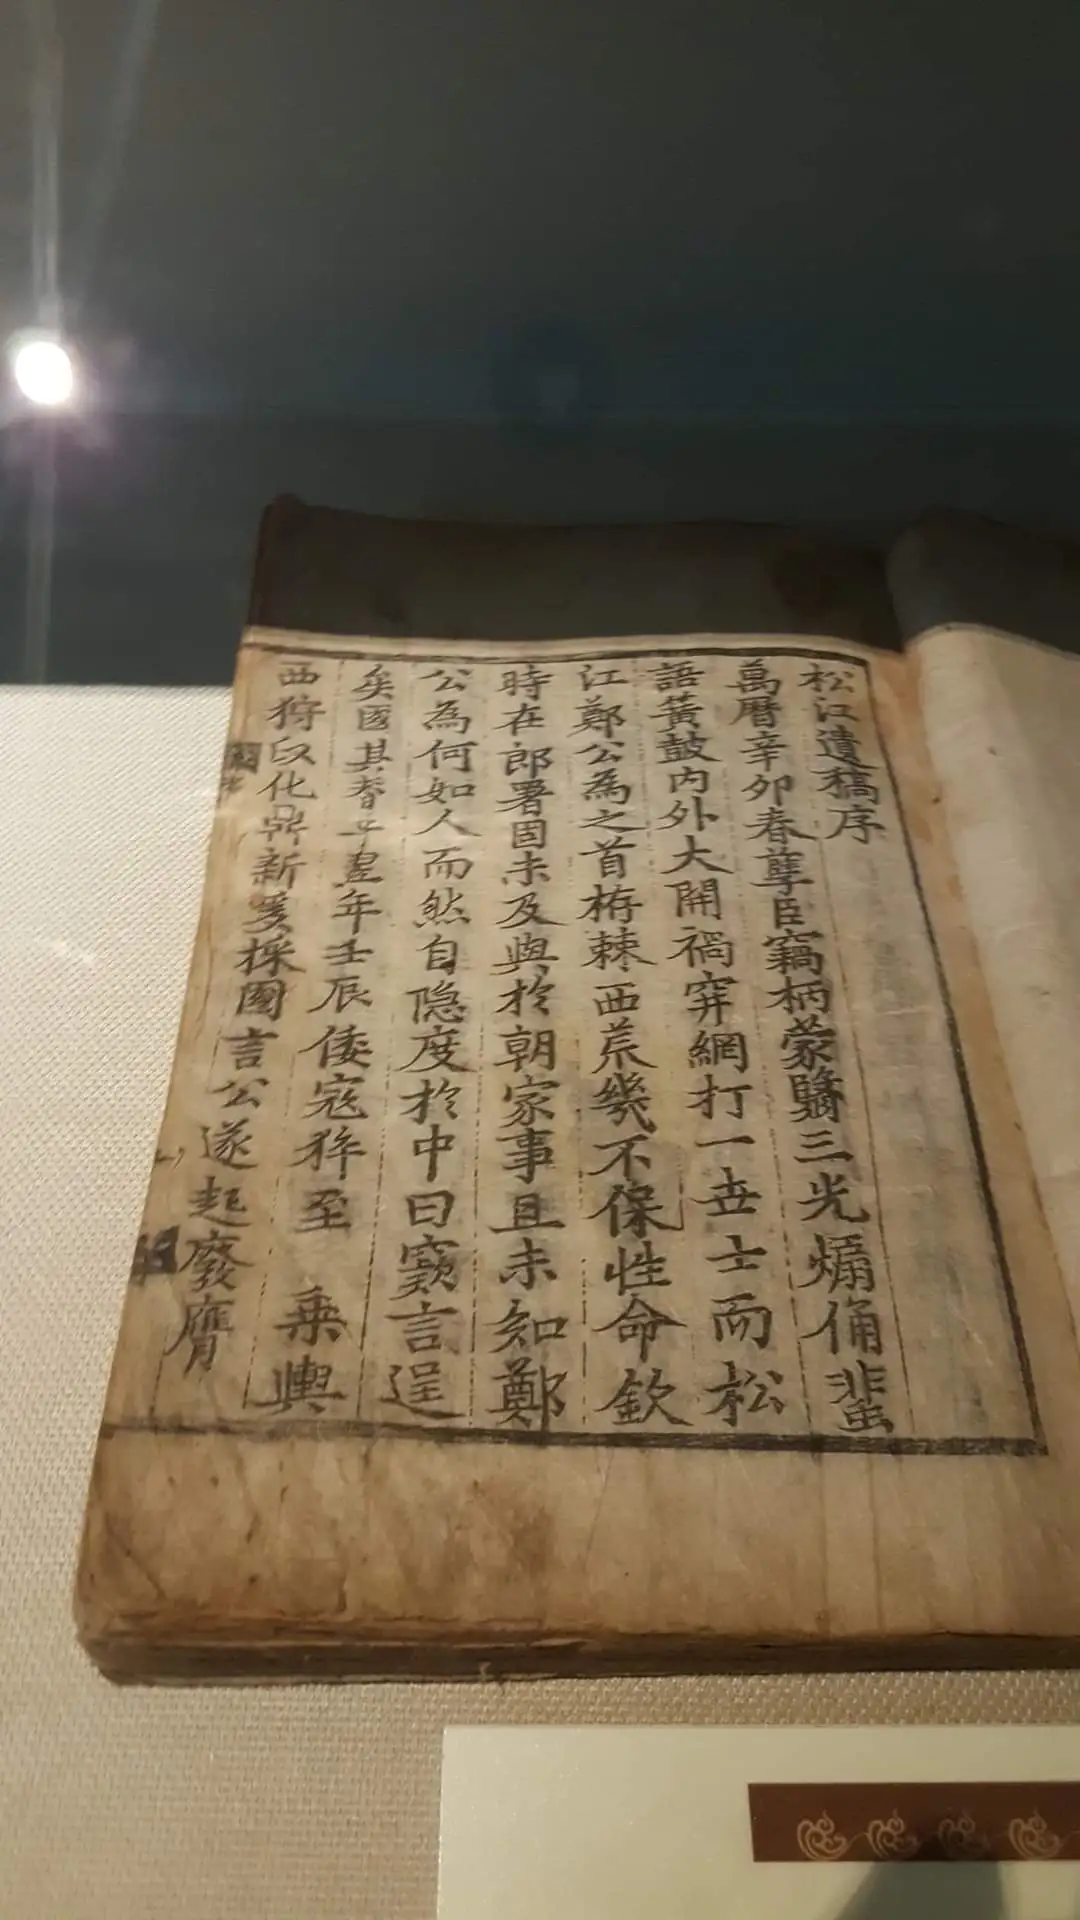 松江遺稿序
萬曆辛卯春孽臣竊柄蒙翳三光煽俑蜚
語簧鼓內外大開禍穽網打一世士而松
江鄭公為之首栫棘西荒幾不保性命欽
時在郎署固未及與於朝家事且未知鄭
公為何如人而然自隠度於中曰竄言逞
矣國其瘠乎翌年壬辰倭寇猝至 乘輿
西狩 化鼎新爰採國言公遂起廢膺